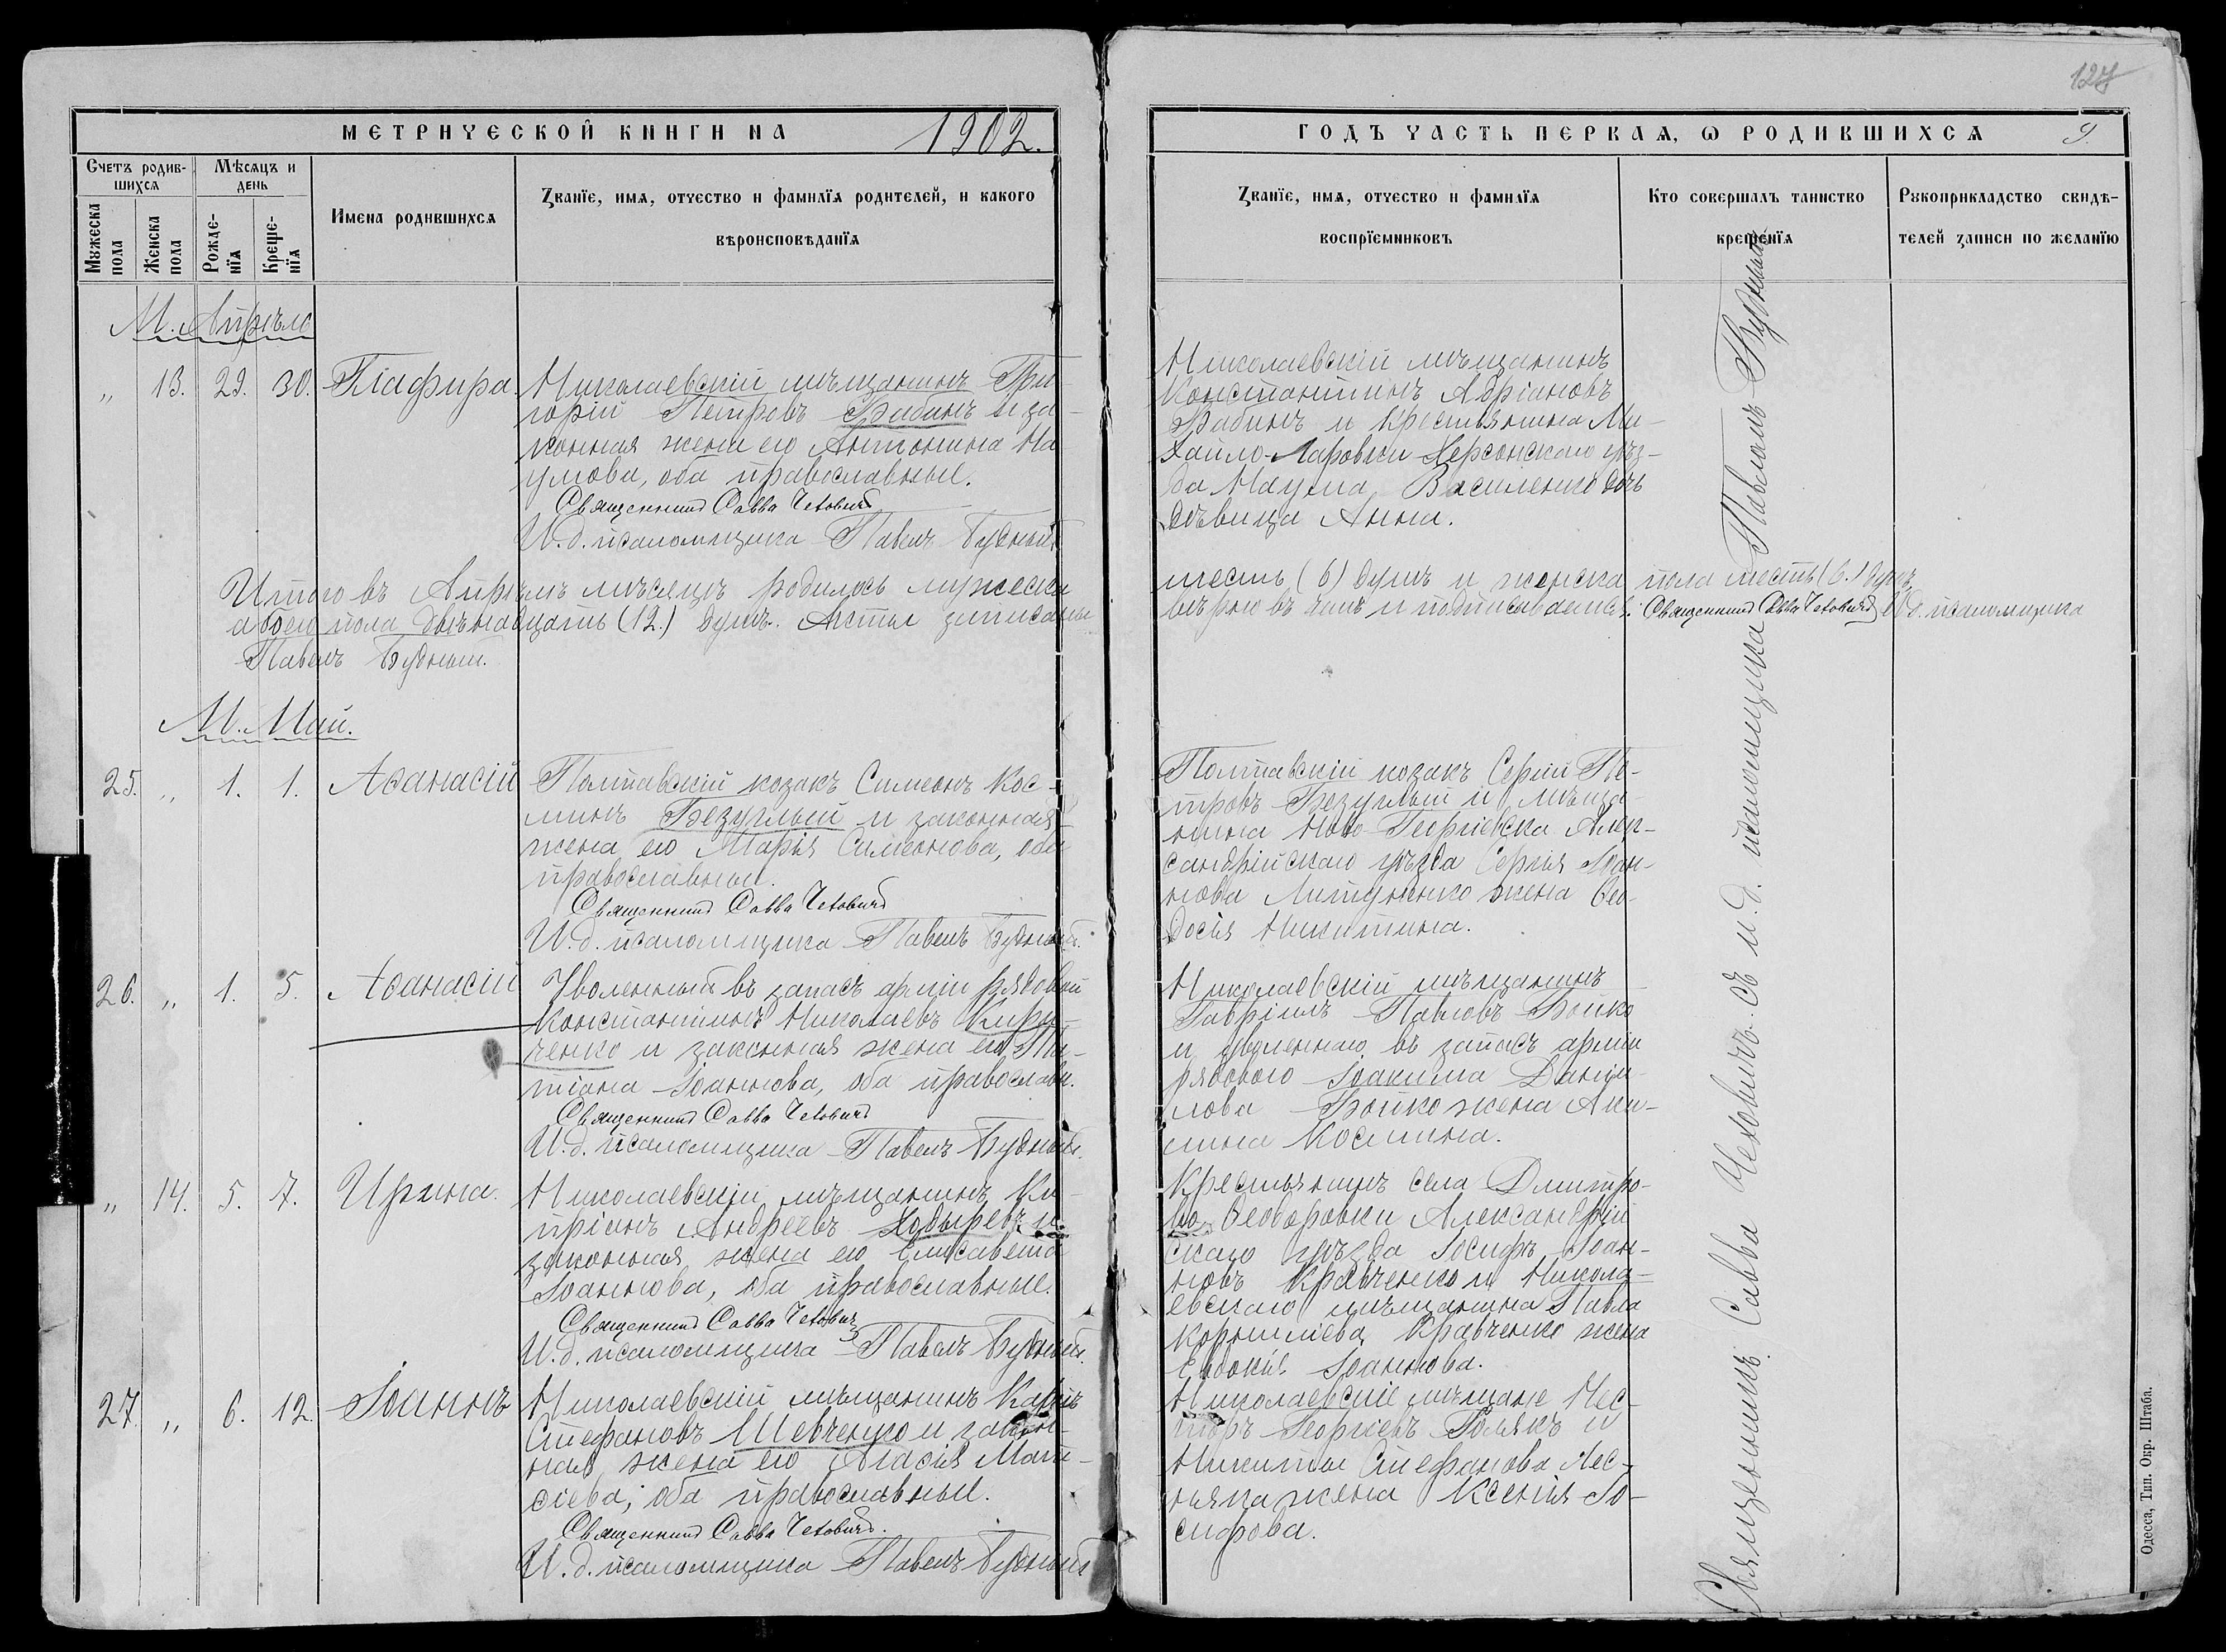 127
МЕТРИЧЕСКОЙ КНИГИ НА 1902.
ГОДЪ ЧАСТЬ ПЕРВАЯ, Ѡ РОДИВШИХСЯ 9.
Счетъ родив-
шихся
Мѣсяцъ и
день
Мужеска
пола
Женска
пола
Рожде-
нїя
Креще-
нїя
Имена родившихся
Званїе, имя, отчество и фамилїя родителей, и какого
вѣроисповѣданїя
Званїе, имя, отчество и фамилїя
воспрїемниковъ
Кто совершалъ таинство
крещенїя
Рукоприкладство свидѣ-
телей записи по желанїю
М. Апрѣль
„ 13. 29. 30. Глафира.
Николаевскій мѣщанинъ Гри-
горій Петровъ Бабинъ и за-
конная жена его Антонина На-
умова, оба православные.
Священникъ Савва Чехович
И. д. псаломщика Павелъ Будный
Николаевскій мѣщанинъ
Константинъ Адріановъ
Бабинъ и крестьянина Ми-
хайло-Ларовки Херсонскаго уѣз-
да Наума Василенко дочь
дѣвица Анна.
Итого въ Апрѣлѣ мѣсяцѣ родилось мужеска шесть (6) душъ и женска пола шесть (6.) душъ,
а обоего пола двѣнадцать (12.) душъ. Акты записаны вѣрно въ чемъ и подписываемся: Священникъ Савва Чехович И. д. псаломщика
Павелъ Будный.
М. Май.
25. „ 1. 1. Аѳанасій
Полтавскій козакъ Симеонъ Кос-
минъ Безуглый и законная
жена его Марія Симеонова, оба
православные.
Священникъ Савва Чехович
И. д. псаломщика Павелъ Будный.
Полтавскій козакъ Сергій Пе-
тровъ Безуглый и мѣща-
нина Ново-Георгіевска Алек-
сандрійскаго уѣзда Сергія Іоан-
нова жена Ѳео-
досія Никитина.
26. „ 1. 5. Аѳанасій
Уволенный въ запасъ арміи рядовой
Константинъ Николаевъ Кири-
ченко и законная жена его Та-
тіана Іоаннова, оба православн.
Священникъ Савва Чехович
И. д. псаломщика Павелъ Будный.
Николаевскій мѣщанинъ
Гавріилъ Павловъ Бойко
и уволеннаго въ запасъ арміи
рядового Іоакима Дани-
лова Бойко жена Аки-
лина Космина.
„ 14. 5. 7. Ирина.
Николаевскій мѣщанинъ Ки-
пріанъ Андреевъ Ходыревъ и
законная жена его Елисавета
Іоаннова, оба православные.
Священникъ Савва Чехович
И. д. псаломщика Павелъ Будный.
Крестьянинъ села Дмитро-
во-Ѳеодоровки Александрій
скаго уѣзда Іосифъ Іоан-
новъ Кравченко и Никола-
евскаго мѣщанина Павла
Корниліева Кравченко жена
Евдокія Іоаннова.
27. „ 6. 12. Іоаннъ
Николаевскій мѣщанинъ Карпъ
Стефановъ Шевченко и закон-
ная жена его Агасія Мат-
ѳіева, оба православные.
Священникъ Савва Чехович.
И. д. псаломщика Павелъ Будный
Николаевскіе мѣщане Нес-
торъ Георгіевъ и
Никиты Стефанова
жена Ксенія Іо-
сифова.
Священникъ Савва Чеховичъ съ и. д. псаломщика Павломъ Буднымъ
Одесса, Тип. Окр. Штаба.